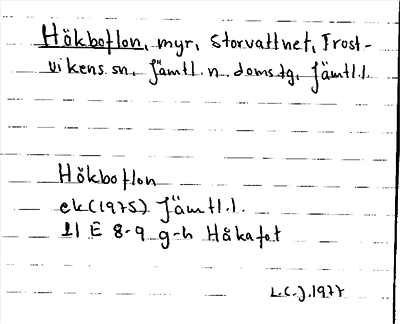 Hökboflon, myr, Storvattnet, Frost-
vikens sn, Jämtl. n. domstg, Jämtl. l.
Hökboflon
ek (1975) Jämtl. l.
21 E 8-9 g-h Håkafot
L.C.J. 1977